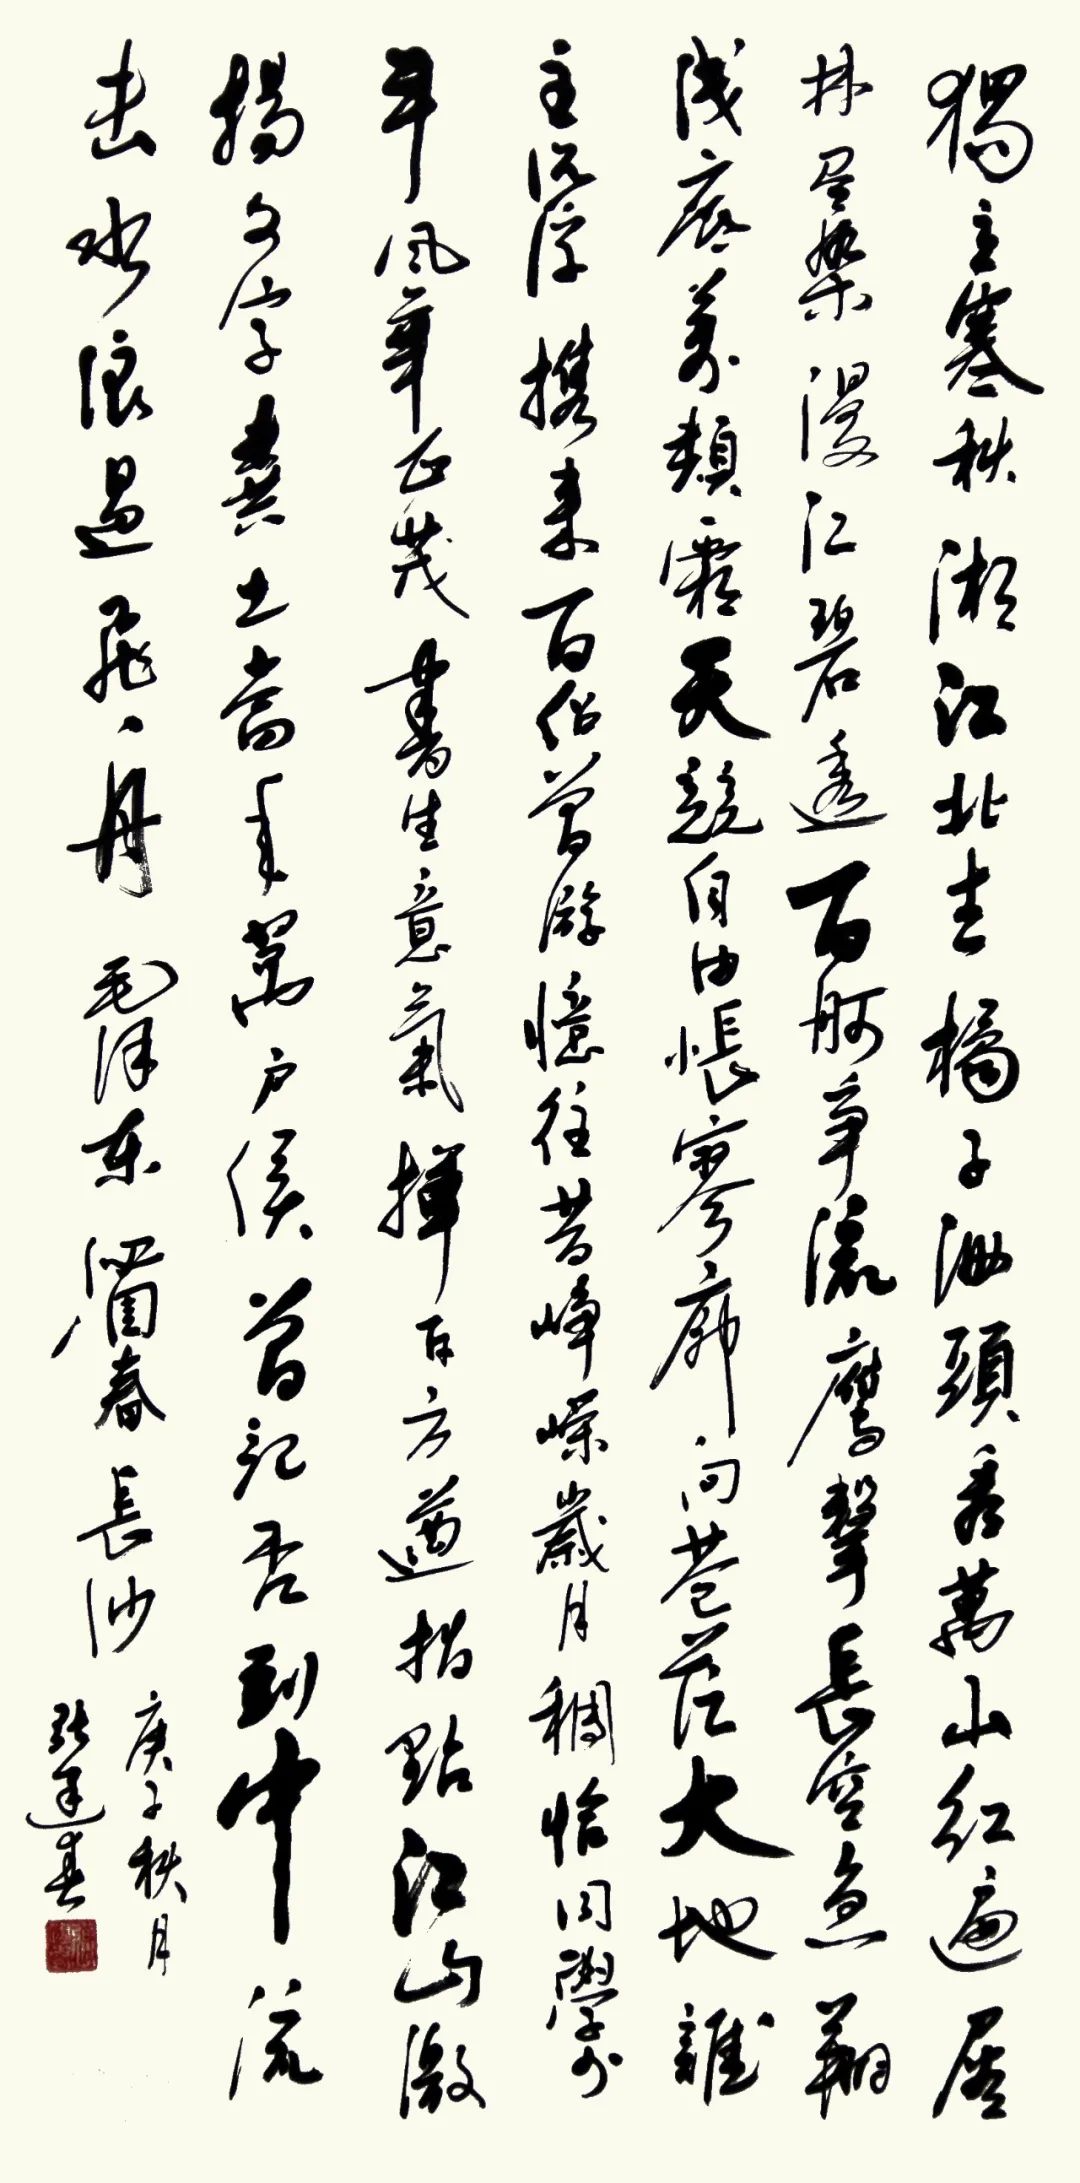 獨立寒秋湘江北去橘子洲頭看萬山紅遍層
林盡染漫江碧透百舸爭流鷹擊長空魚翔
浅底萬類霜天競自由悵寥廓问苍茫大地誰
主沉浮携來百侣曾游憶往昔崢嶸歲月稠恰同學少
年风華正茂書生意氣揮斥方遒指點江山激
揚文字糞土當年萬户侯曾記否到中流
击水浪遏飛舟 毛泽东 沁園春 長沙
庚子秋月